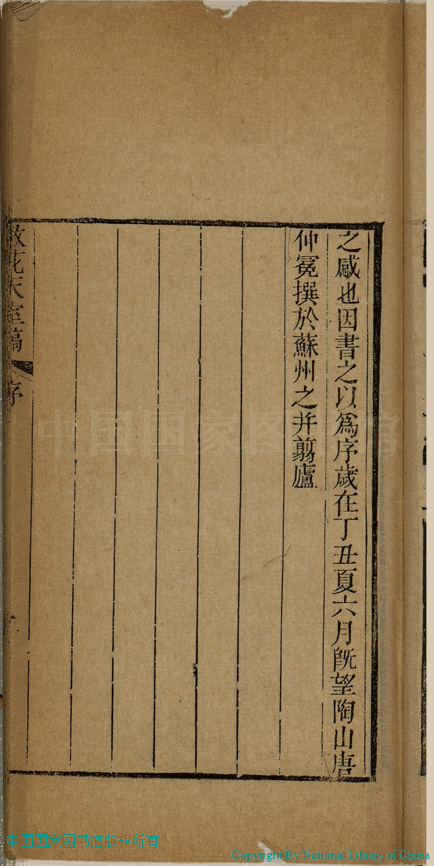 之感也因書之以爲序歲在丁丑夏六月既望陶山唐
仲冕撰於蘇州之并翦廬
散花天室稿
序
中国国家图书馆
中国国家图书馆版权所有
Copyright By National Library of China